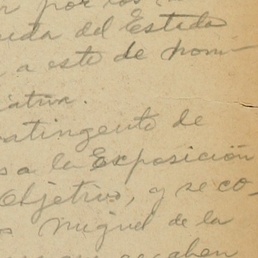 por los
ida del Estado
a este de nomi-
iativa.
ntingente de
s a la Exposición
Objetivo, y se co-
Miguel de la
acaben